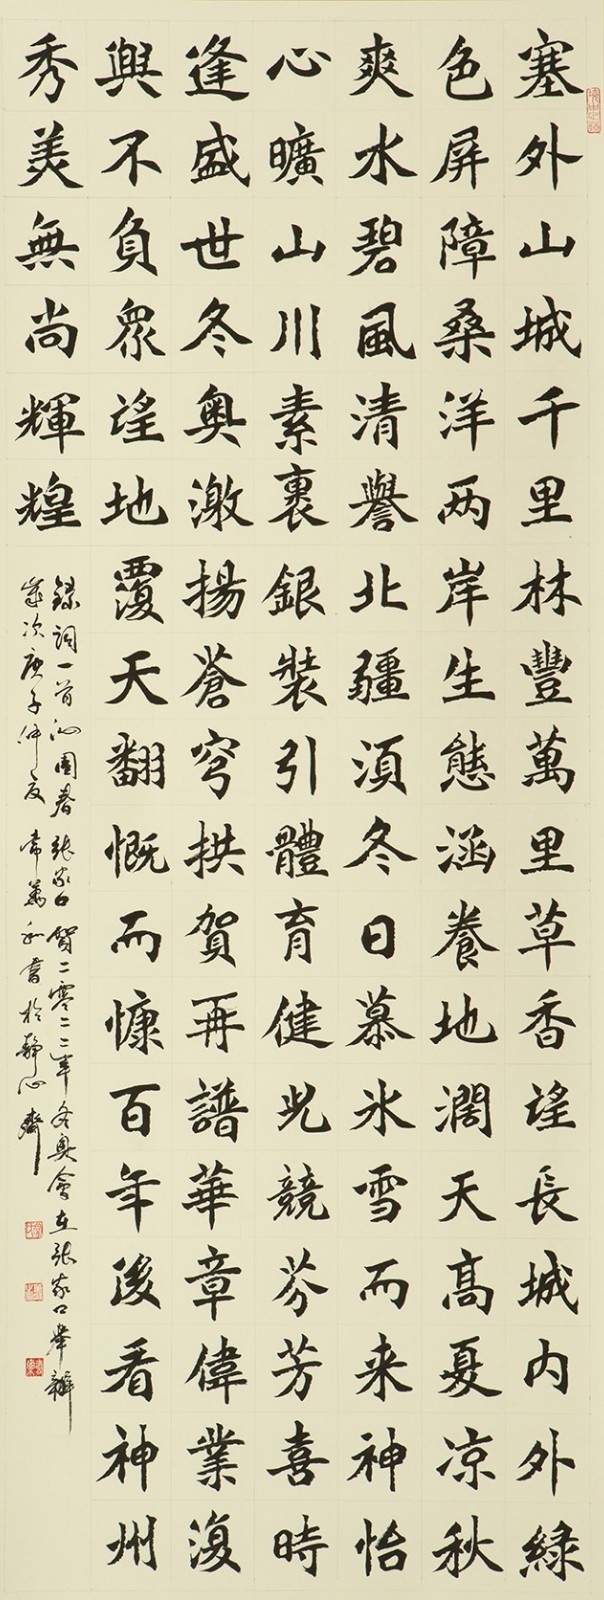 塞外山城千里林豐萬里草香望長城內外綠
色屏障桑洋两岸生態涵養地濶天高夏凉秋
爽水碧風清譽北疆須冬日慕氷雪而来神怡
心曠山川素裹銀裝引體育健兒競芬芳喜時
逢盛世冬奥激揚蒼穹拱賀再譜華章偉業復
興不負衆望地覆天翻慨而慷百年後看神州
秀美無尚輝煌
錄詞一首沁園春張家口賀二零二二年冬奥會在張家口舉辦
歲次庚子仲夏常萬和書於靜心齋